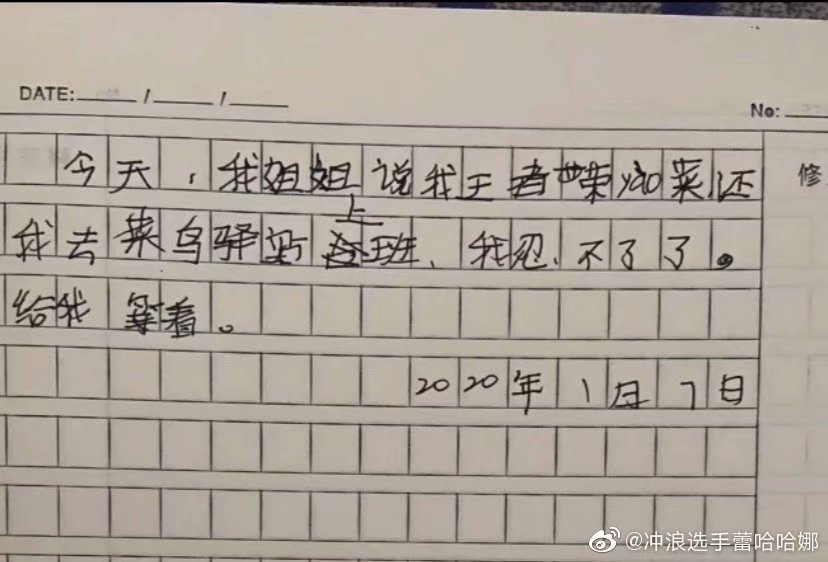 DATE: / /
No:
今天，我姐姐说我王者荣yao菜还
我去菜鸟驿站上班、我忍不了了。
给我等看。
2020年1月7日
修
@冲浪选手蕾哈哈娜